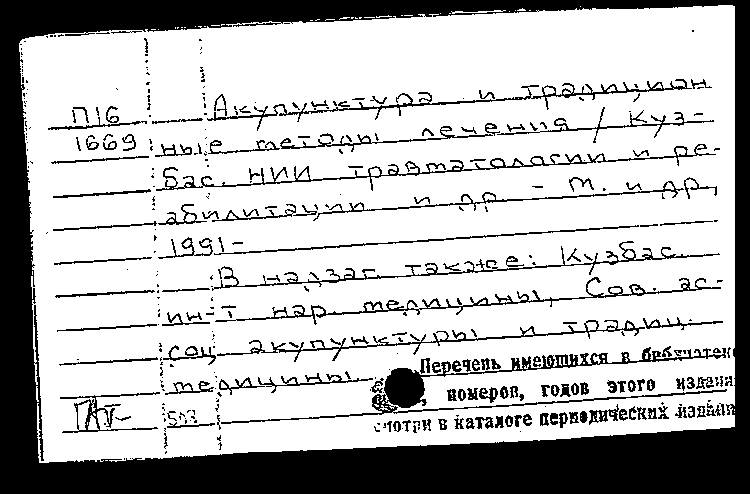 П16 Акупунктура и традицион
1669 ные методы лечения / Куз-
бас. НИИ травматологии и ре-
абилитации и др - М. и др,
1991-
В надзаг. также: Кузбас.
ин-т нар. медицины, Сов. ас-
соц акупунктуры и традиц.
медицины
Перечень имеющихся в библиотеке
, номеров, годов этого издания
смотри в каталоге периодических издани